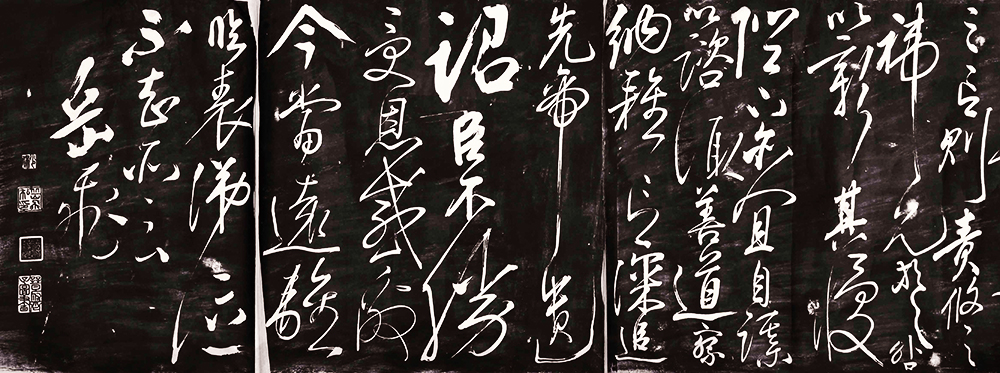 之言則責攸之
禕允等咎
以彰其慢
陛下亦宜自謀
以諮諏善道察
納雅言深追
先帝遺
詔臣不勝
受恩感激
今當遠離
臨表涕泣
不知所云
岳飛